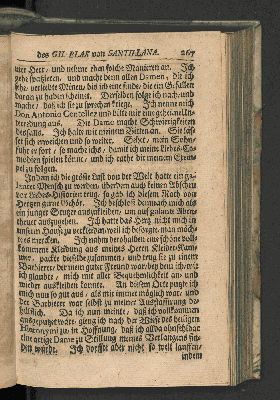 des GIL BLAS von SANTILLANA. 267
mer Herr, und nehme eben solche Manieren an. Ich
gehe spatzieren, und mache denen allen Damen, die ich
sehe, verliebte Minen, bis ich eine finde, die ein Gefallen
daran zu haben scheinet. Derselben folge ich nach, und
mache, daß ich sie zu sprechen kriege. Ich nenne mich
Don Antonio Centelles und bitte mir eine geheime Un-
terredung aus. Die Dame macht Schwierigkeiten
desfalls. Ich halte mit meinem Bitten an. Sie lässet
sich erweichen und so weiter. Sehet, mein Sohn,
fuhr er fort, so mache ichs, damit ich meine Liebes-Co-
mödien spielen könne, und ich rathe dir meinem Exem-
pel zu folgen.
In dem ich die größte Lust von der Welt hatte ein ga-
lanter Mensch zu werden, überdem auch keinen Abscheu
vor Liebes-Historien trug, so gab ich diesem Rath von
Hertzen gerne Gehör. Ich beschloß demnach mich als
ein junger Stutzer auszukleiden, um auf galante Aben-
theuer auszugehen. Ich hatte das Hertz nicht mich in
unserm Hause zu verkleiden, weil ich besorgte, man möch-
te es mercken. Ich nahm derohalben eine schöne voll-
kommene Kleidung aus meines Herrn Kleider-Kam-
mer, packte dieselbe zusammen, und trug sie zu einem
Barbierer, der mein guter Freund war, bey dem ich, wie
ich glaubte, mich mit aller Bequemlichkeit an- und
wieder auskleiden konnte. An diesem Orte putzte ich
mich nun so gut aus, als mir immer möglich war, und
der Barbierer war mir selbst zu meiner Ausstaffirung be-
hülflich. Da ich nun meinte, daß ich vollkommen
ausgeputzet wäre, gieng ich nach der Wiese des heiligen
Hieronymi zu, in Hoffnung, daß ich allda ohnfehlbar
eine artige Dame zu Stillung meines Verlangens fin-
den würde. Ich durfte aber nicht so weit lauffen,
indem